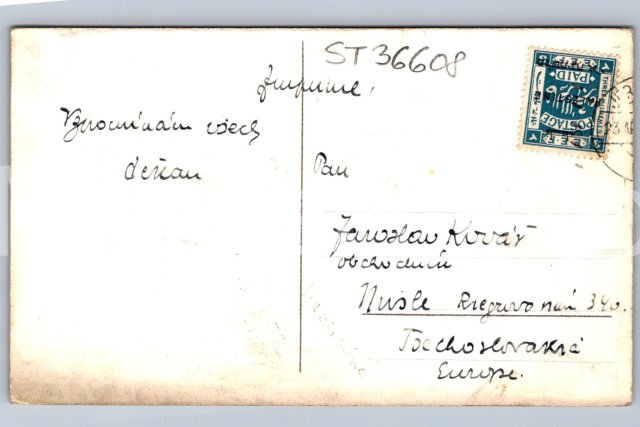 ST 36608
Imprimé.
Vzpomínám všech
Pan
Jaroslav Kovář
obchodník
Nusle Riegrovo nám 340.
Tschoslovakie
Europe.
PAID
POSTAGE
E.E.F.